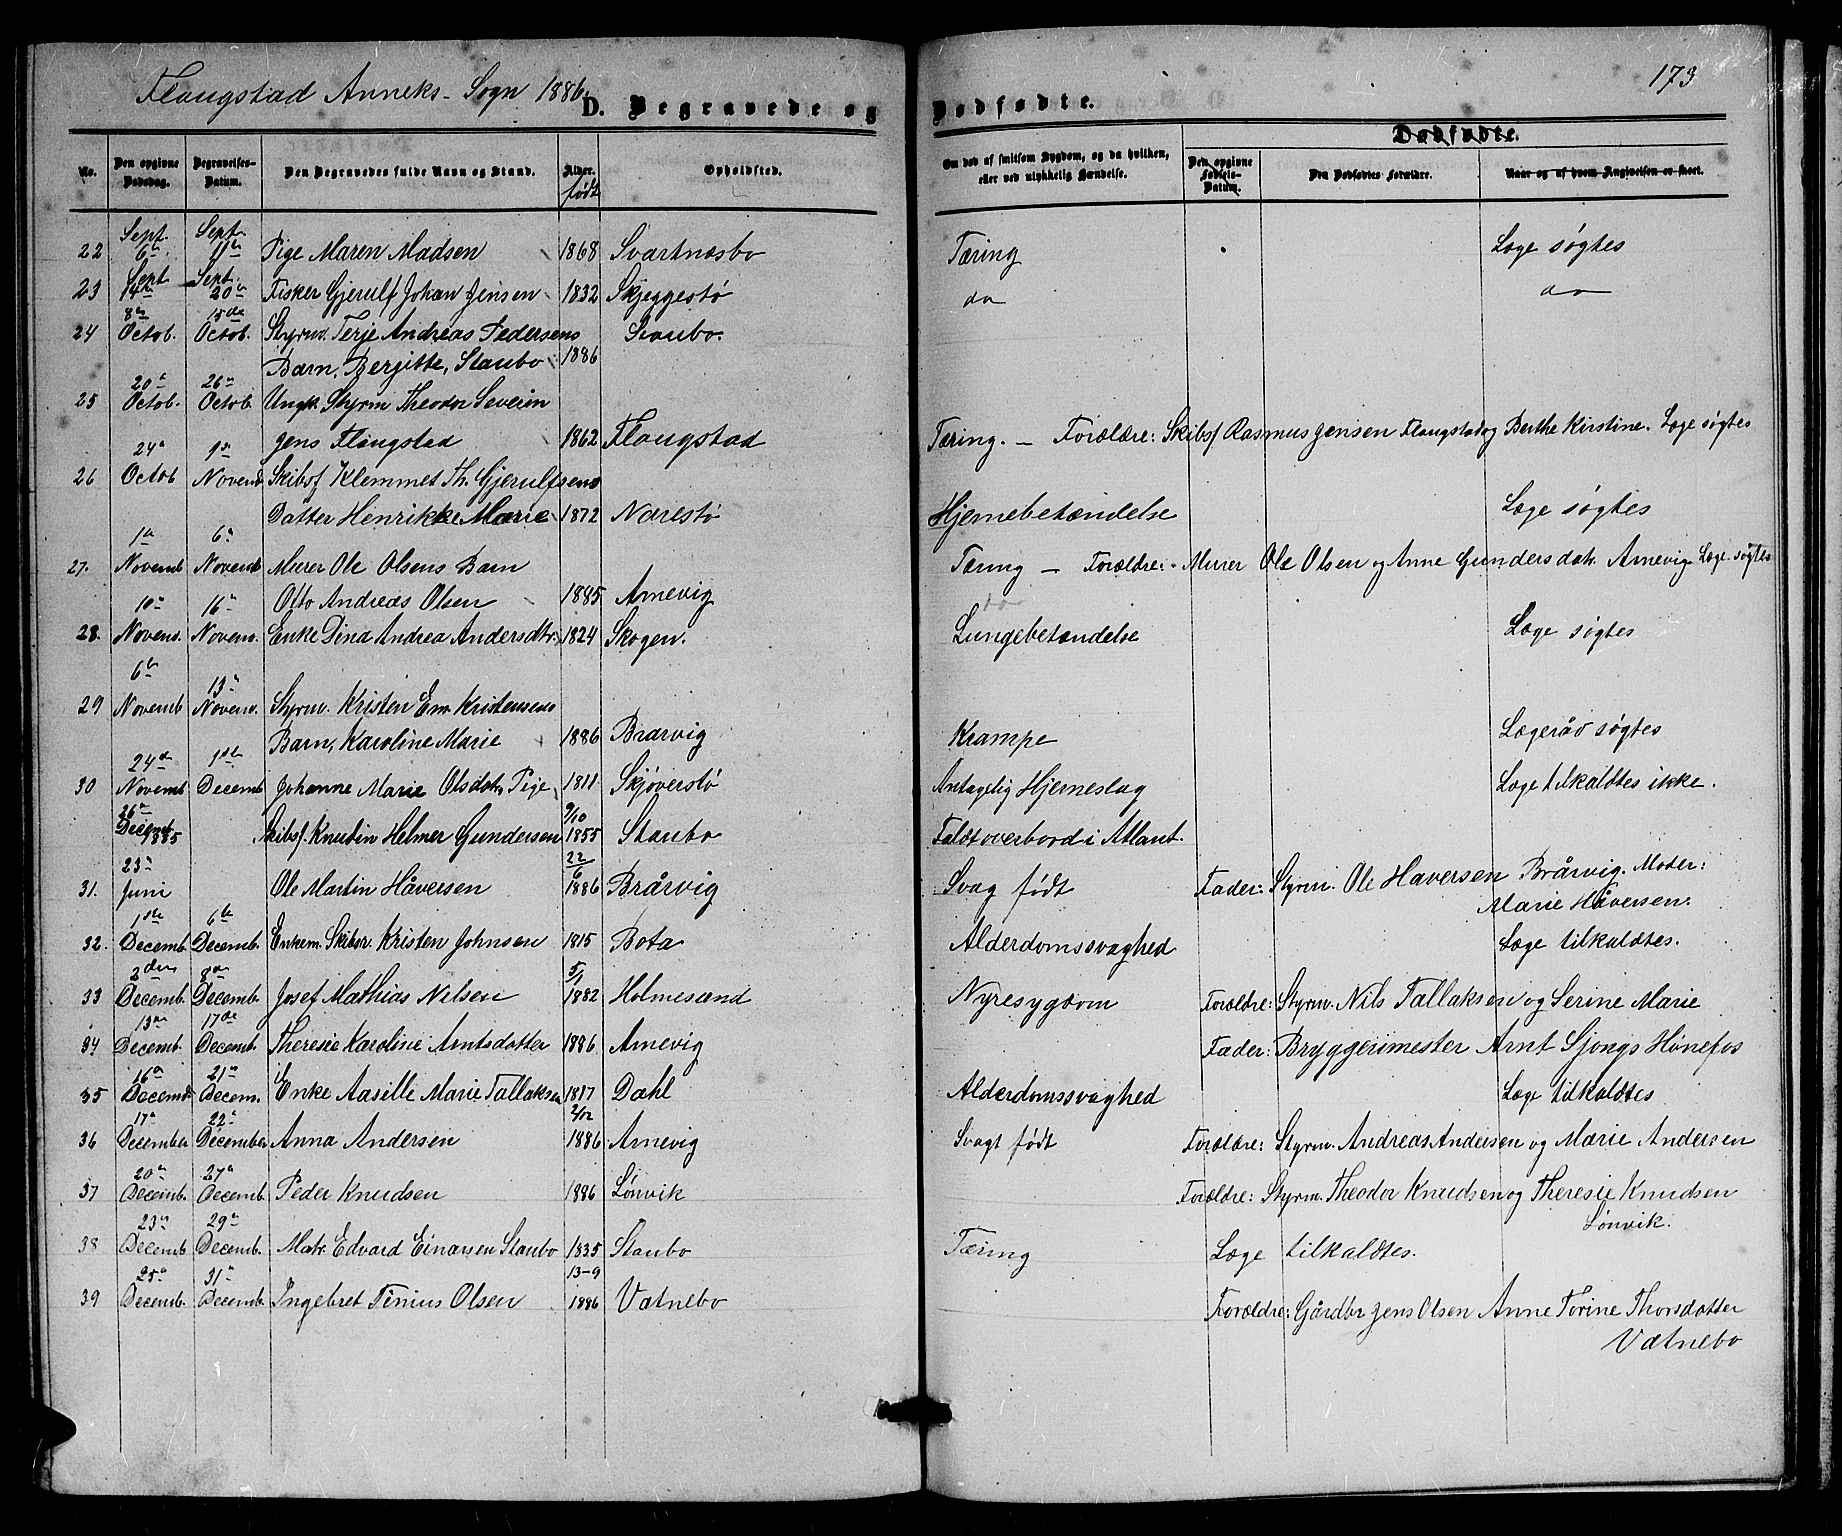 Flangstad Anneks-Sogn 1886.
D. Begravede og Dødfødte.
173
Dødfødte.
No.
Den opgivne Dødsdag.
Begravelses-Datum.
Den Begravedes fulde Navn og Stand.
Alder.
født
Opholdsted.
Om død af smitsom Sygdom, og da hvilken, eller ved ulykkelig Hændelse.
Den opgivne Fødsels-Datum.
Den Dødfødtes Forældre.
Naar og af hvem Angivelsen er skeet.
22 Sept. 6te Sept. 11te Pige Maren Madsen 1868 Svartnæsbo Tæring Læge søgtes
23 Sept 14de Sept. 20de Fisker Gjerulf Johan Jensen 1832 Skjeggestø do do
24 8de Octob. 15de Octob. Styrm. Terje Andreas Pedersens Staubo.
Barn, Bergitte, Staubo 1886
25 20de Octob. 26de Octob. Ungk. Styrm Theodor Severin
Jens Flangstad 1862 Flangstad Tæring. – Forældre: Skibsf Rasmus Jensen Flangstad og Berthe Kirstine. Læge søgtes
26 24de Octob 1ste Novemb Skibsf Klemmet Th. Gjerulfsens
Datter Henrikke Marie 1872 Narestø Hjernebetændelse Læge søgtes
27. 1ste Novemb 6te Novemb Murer Ole Olsens Barn Tæring – Forældre: Murer Ole Olsen og Anne Gundersdat. Arnevig Læge søgtes
Otto Andreas Olsen 1885 Arnevig
28. 10de Novem. 16de Novem. Enke Dina Andrea Andersdtr. 1824 Skogen. Lungebetændelse Læge søgtes
29 6te Novemb 13de Novem. Styrm. Kristen Em. Kristensens
Barn, Karoline Marie 1886 Brarvig Krampe Lægeråd søgtes
30 24de Novemb 1ste Decemb Johanne Marie Olsdat. Pige 1811 Skjøverstø Antagelig Hjerneslag Læge tilkaldtes ikke.
26de Decemb 1885 Skibsf. Knudin Helmer Gundersen 9/10 1855 Staubo Faldt overbord i Atlant.
31. 23de Juni Ole Martin Håversen 22/6 1886 Brårvig Svag født Fader: Styrm. Ole Haversen Brårvig. Moder:
Marie Håversen.
32. 1ste Decemb. 6te Decemb. Enkem. Skibsr. Kristen Johnsen 1815 Bota Alderdomssvaghed Læge tilkaldtes.
33 2den Decemb. 8de Decemb. Josef Mathias Nilsen 5/1 1882 Holmesund Nyresygdom Forældre: Styrm. Nils Tallaksen og Serine Marie
34 13de Decemb. 17de Decemb. Theresie Karoline Arntsdatter 1886 Arnevig Fader: Bryggerimester Arnt Sjongs Hønefos
35 16de Decemb 21de Decem. Enke Aasille Marie Tallaksen 1817 Dahl Alderdomssvaghed Læge tilkaldtes
36 17de December 22de December Anna Andersen 2/12 1886 Arnevig Svagt født Forældre: Styrm. Andreas Andersen og Marie Andersen
37 20de Decemb. 27de Decemb. Peder Knudsen 1886 Lønvik Forældre: Styrm. Theodor Knudsen og Theresie Knudsen
Lønvik.
38 23de Decemb 29de Decemb. Matr. Edvard Einarsen Staubo 1835 Staubo Tæring Læge tilkaldtes.
39 25de Decemb. 31te Decemb. Ingebret Tinius Olsen 13-9 1886 Vatnebo Forældre: Gårdbr Jens Olsen Anne Torine Thorsdatter
Vatnebo